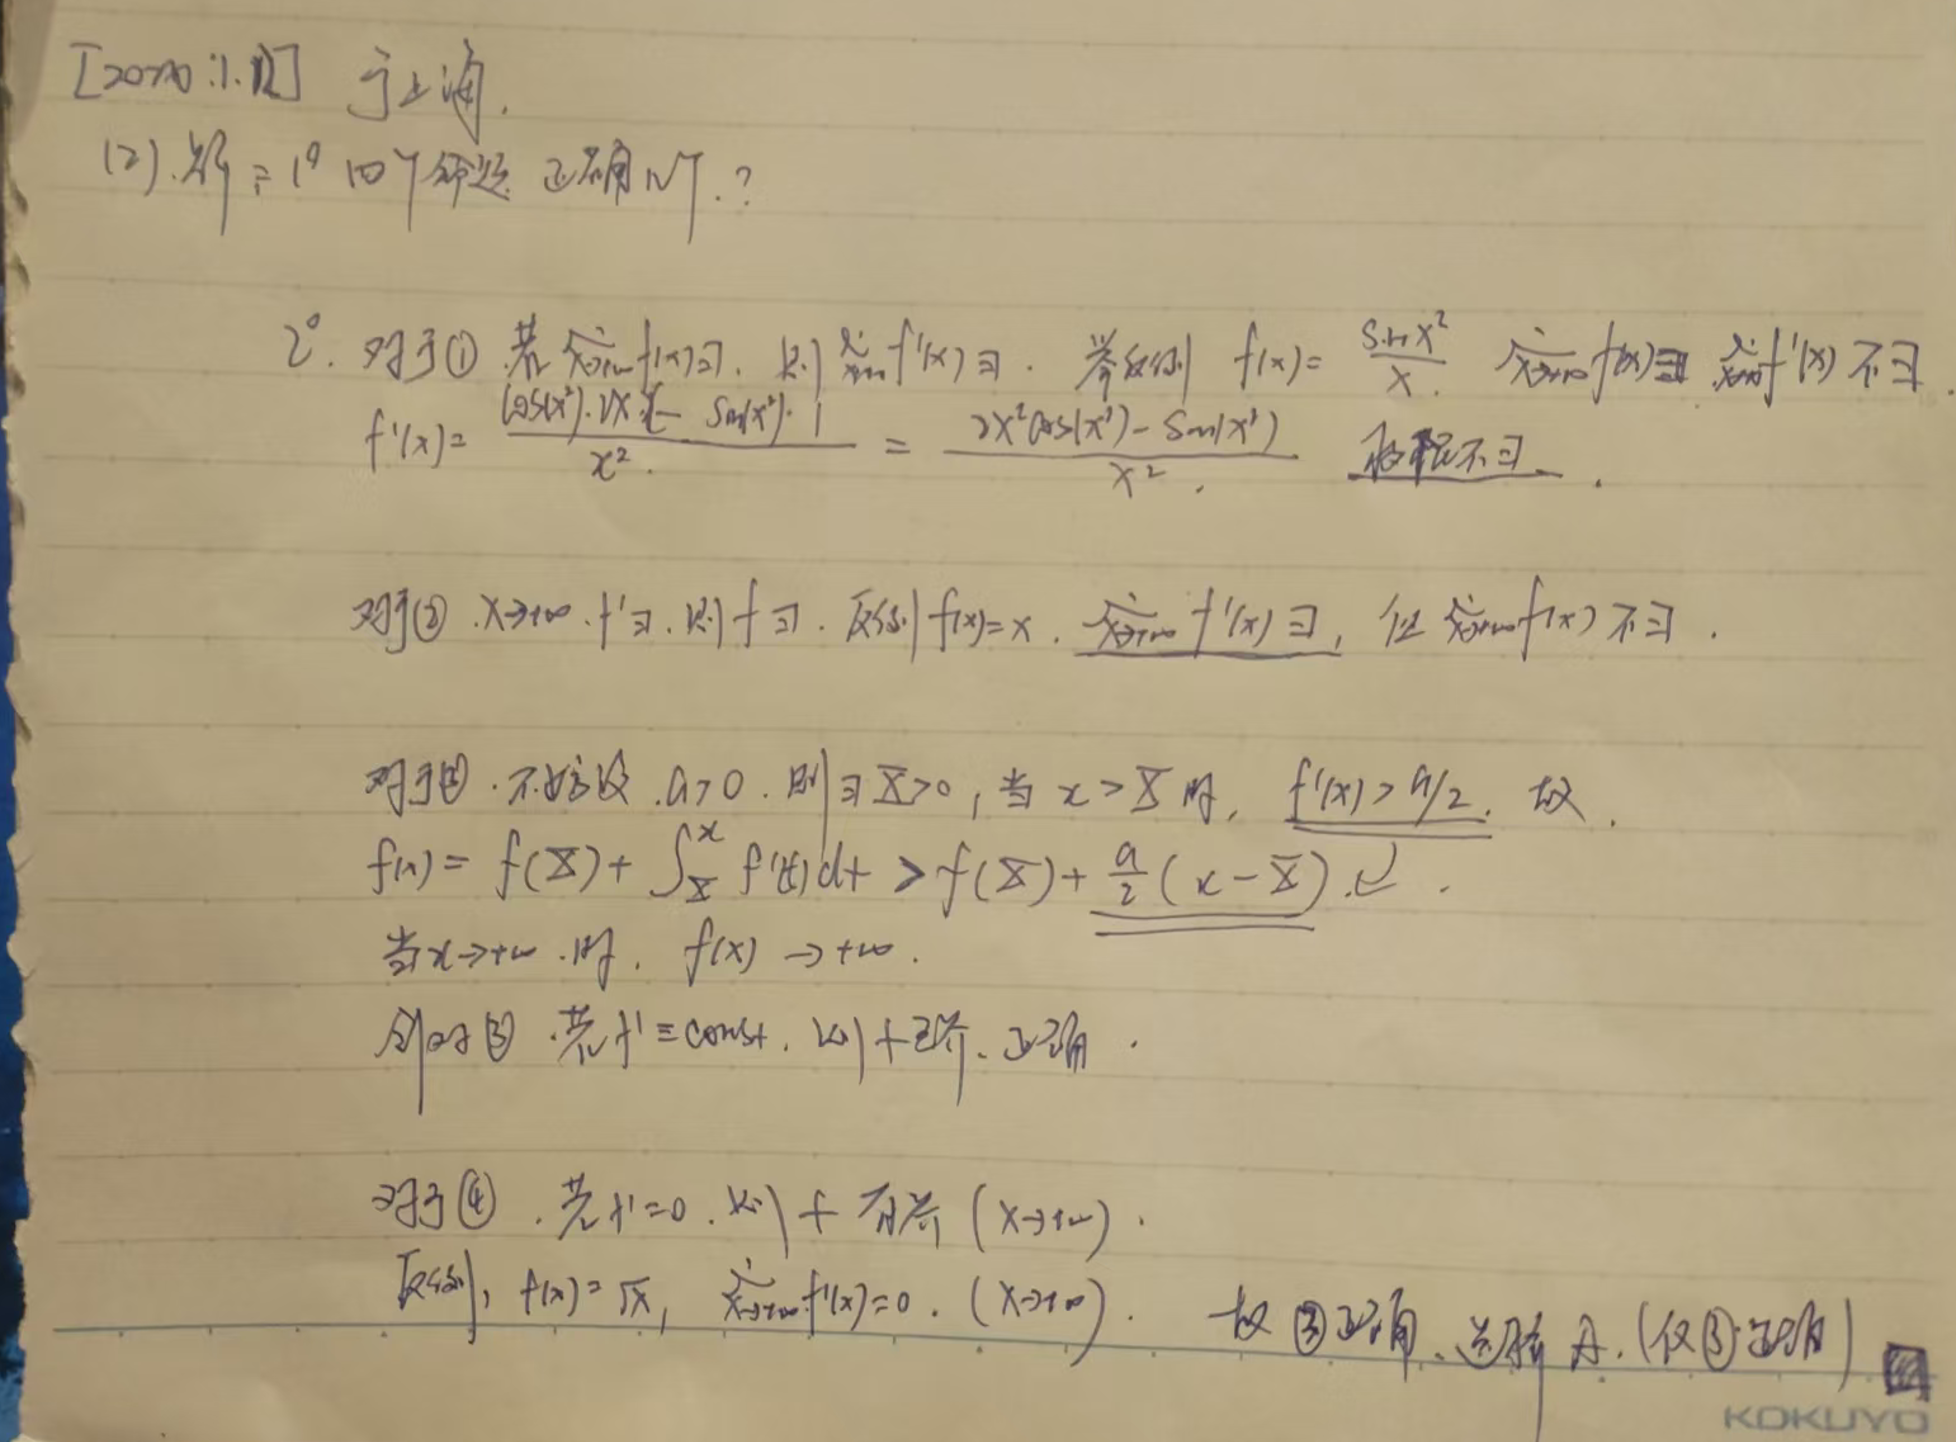 [2020:1.12] 于上海.
(2).解:1° 四个命题 正确1个.?
2°. 对于① 若 lim x→+∞ f(x)∃. 则 lim x→+∞ f'(x)∃. 举反例 f(x)= sinx²/x. lim x→+∞ f(x)∃ lim x→+∞ f'(x) 不∃.
f'(x)= (cos(x²)·2x·x - sin(x²)·1)/x². = (2x²cos(x²)-sin(x²))/x². 极限不∃.
对于② .x→+∞. f'∃. 则 f∃. 反例 f(x)=x. lim x→+∞ f'(x)∃, 但 lim x→+∞ f(x) 不∃.
对于③ .不妨设 .a>0. 则∃X>0, 当 x>X 时, f'(x)>a/2. 故.
f(x)= f(X)+∫_X^x f'(t)dt > f(X)+ a/2 (x-X).
当x→+∞.时, f(x)→+∞.
所以③ .若f'≡const. 则f无界. 正确.
对于④ .若f'=0. 则f有界 (x→+∞).
反例, f(x)=√x, lim x→+∞ f'(x)=0. (x→+∞). 故③正确. 选择A.(仅③正确)
KOKUYO